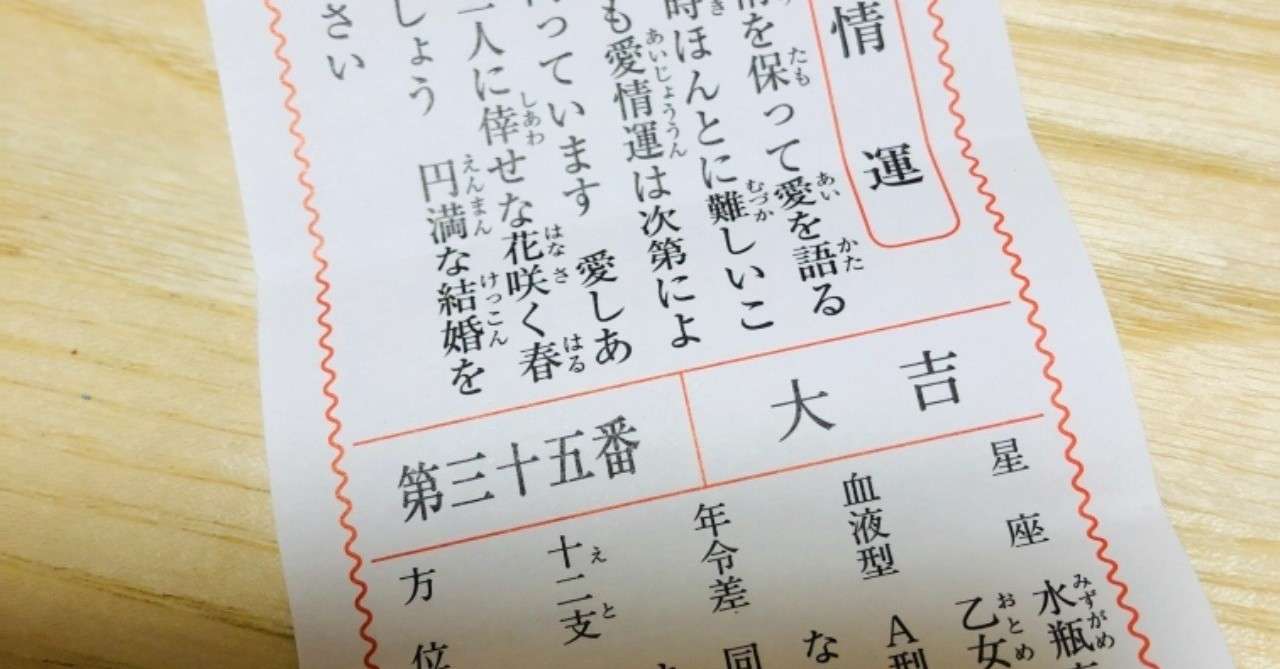 情運
を保って愛を語る
時ほんとに難しいこ
も愛情運は次第によ
っています 愛しあ
人に倖せな花咲く春
しょう 円満な結婚を
さい
吉大
第三十五番
星座 水瓶
乙女
血液型 A型
年令差 同
な
十二支
方位